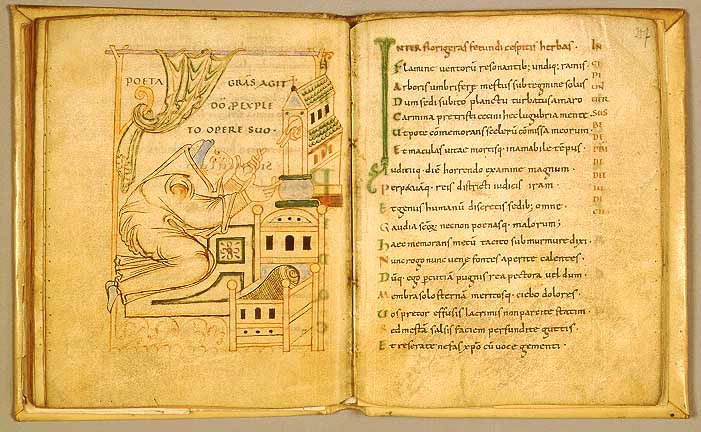 POETA GRĀS AGIT
DŌ, P EXPLE
TO OPERE SUO·
INTER florigeras fecundi cespitis herbas·
Flamine ventorum resonantib; undiq; ramis·
Arboris umbriferę mestus subtegmine solus
Dum sedi subito planctu turbatus amaro
Carmina pre tristi cecini hec lugubria mente·
Utpote comemorans scelerū comissa meorum·
Et maculas vitae mortisq; inamabile tempus·
Iudiciiq; diē horrendo examine magnum·
Perpetuāq; reis districti iudicis iram·
Et genus humanū discretis sedib; omne·
Gaudia scōrū necnon poenasq; malorum;
Haec memorans mecū tacito submurmure dixi·
Nunc rogo nunc vene fontes aperite calentes·
Dūq; ego pcutiam pugnis rea pectora vel dum·
Membra solo sternā meritosq; ciebo dolores·
Vos precor effusis lacrimis non parcite statim·
Sed mestā salsis faciem perfundite guttis·
Et reserate nefas xpō cū voce gementi·